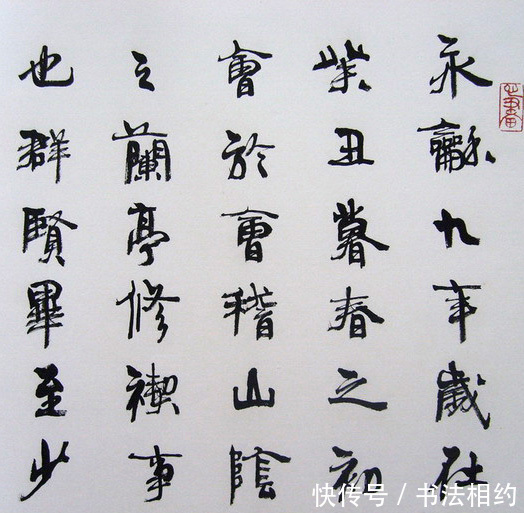 永龢九年歲在
癸丑暮春之初
會於會稽山陰
之蘭亭修禊事
也群賢畢至少
快传号 / 书法相约